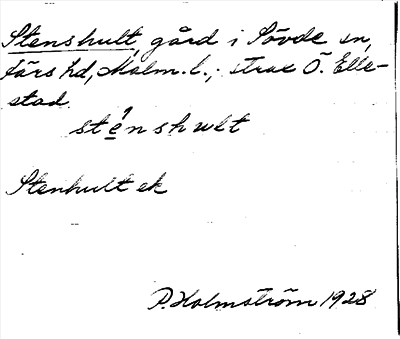 Stenshult, gård i Sövde sn,
Färs hd, Malm. l.; strax Ö. Elle-
stad.
sténshult
Stenhult ek
P. Holmström 1928